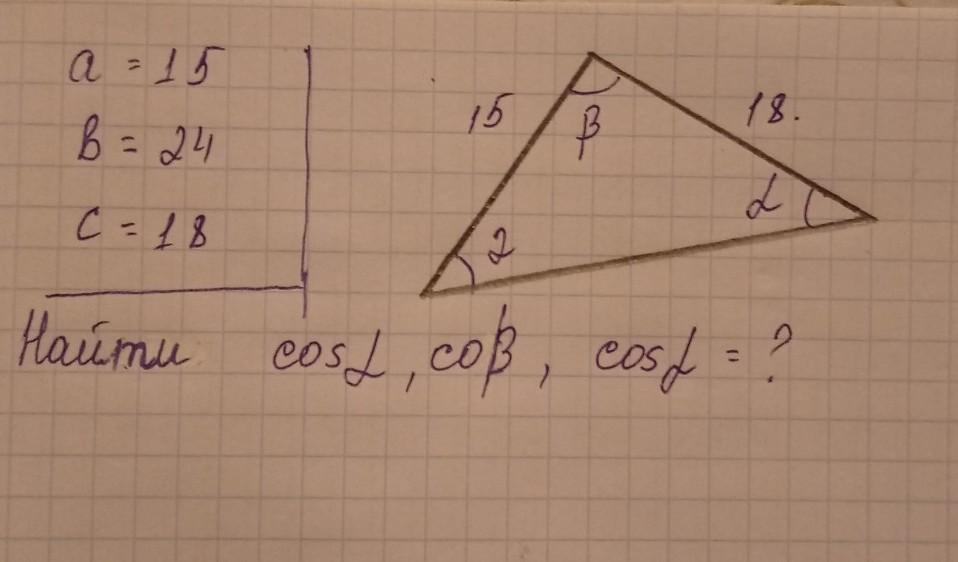 a = 15
B = 24
C = 18
15
18.
β
α
2
Найти cosα, coβ, cosα = ?